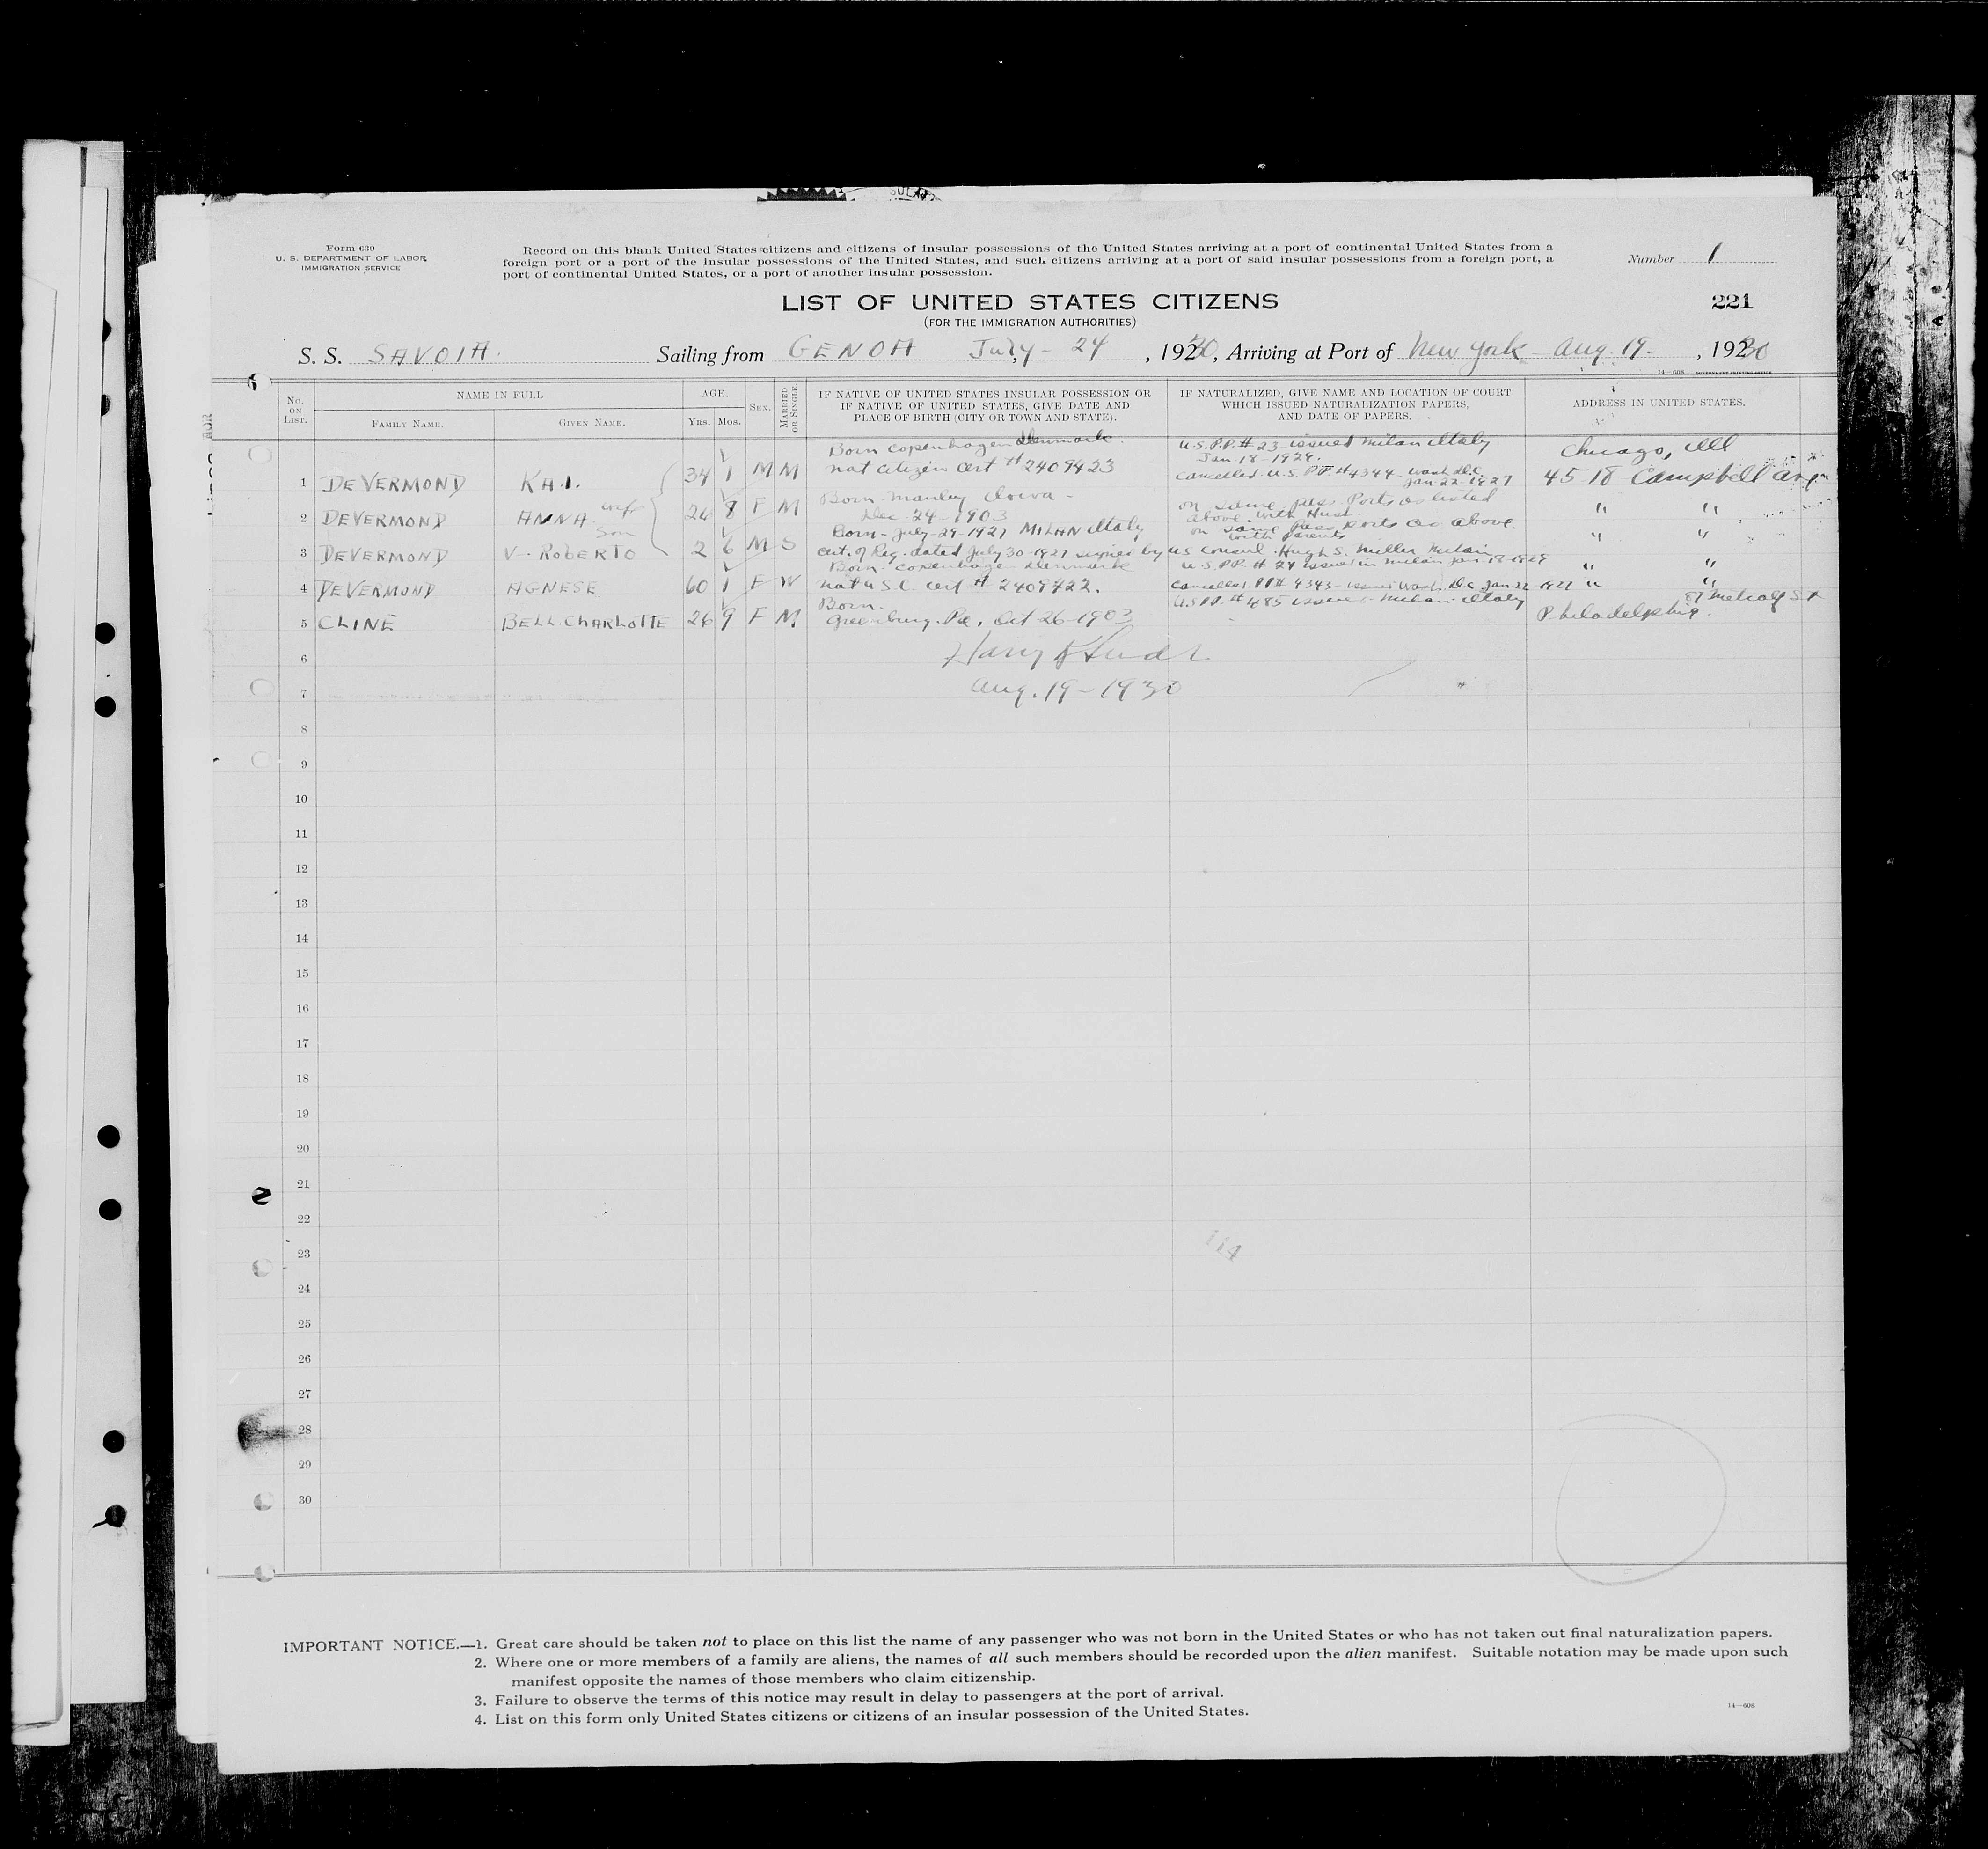 Form 630
U. S. DEPARTMENT OF LABOR
IMMIGRATION SERVICE
Record on this blank United States citizens and citizens of insular possessions of the United States arriving at a port of continental United States from a
foreign port or a port of the insular possessions of the United States, and such citizens arriving at a port of said insular possessions from a foreign port, a
port of continental United States, or a port of another insular possession.
Number 1
LIST OF UNITED STATES CITIZENS
221
(FOR THE IMMIGRATION AUTHORITIES)
S. S. SAVOIA. Sailing from GENOA July - 24, 1930, Arriving at Port of New York - Aug. 19 -, 1930
14—608 GOVERNMENT PRINTING OFFICE
No. ON LIST.
NAME IN FULL
FAMILY NAME. GIVEN NAME.
AGE.
Yrs. Mos.
SEX.
MARRIED OR SINGLE.
IF NATIVE OF UNITED STATES INSULAR POSSESSION OR
IF NATIVE OF UNITED STATES, GIVE DATE AND
PLACE OF BIRTH (CITY OR TOWN AND STATE).
IF NATURALIZED, GIVE NAME AND LOCATION OF COURT
WHICH ISSUED NATURALIZATION PAPERS,
AND DATE OF PAPERS.
ADDRESS IN UNITED STATES.
Born Copenhagen Denmark. U.S.P.P. # 23 issued Milan Italy
Jan-18-1929. Chicago, Ill
1 DEVERMOND KAI. 34 1 M M nat citizen cert # 2409423 cancelled U.S. PP # 4344 Wash D.C. Jan-22-1927 45-18 Campbell Ave
Born Manley Iowa - on same pass-ports as listed
2 DEVERMOND ANNA wife 26 8 F M Dec-24-1903 above with Husb. " "
Born-July-29-1927 MILAN Italy on same pass ports as above
3 DEVERMOND V. ROBERTO Son 2 6 M S cert. of Reg. dated July 30-1927 signed by US Consul Hugh S. Miller Milan with parents " "
Born-Copenhagen Denmark U.S.P.P. # 24 issued in Milan Jan 18-1929
4 DEVERMOND AGNESE 60 1 F W nat U.S.C. cert # 2409422. cancelled PP # 4343-issued Wash. D.C. Jan 22-1927 " "
Born- U.S.P.P. # 485 issued - Milan Italy 87 Metcalf St
5 CLINE BELL.CHARLOTTE 26 9 F M Greenburg. Pa, Oct 26-1903 Philadelphia.
6
Aug. 19-1930
7
8
9
10
11
12
13
14
15
16
17
18
19
20
21
22
23
114
24
25
26
27
28
29
30
IMPORTANT NOTICE.—1. Great care should be taken not to place on this list the name of any passenger who was not born in the United States or who has not taken out final naturalization papers.
2. Where one or more members of a family are aliens, the names of all such members should be recorded upon the alien manifest. Suitable notation may be made upon such
manifest opposite the names of those members who claim citizenship.
3. Failure to observe the terms of this notice may result in delay to passengers at the port of arrival.
4. List on this form only United States citizens or citizens of an insular possession of the United States.
14—608